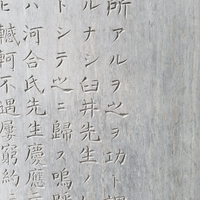 所アルヲ之ヲ功ト謂
ルナシ臼井先生ノ
トシテ之ニ歸ス嗚呼
ハ河合氏先生慶應
轗軻不遇屡窮約